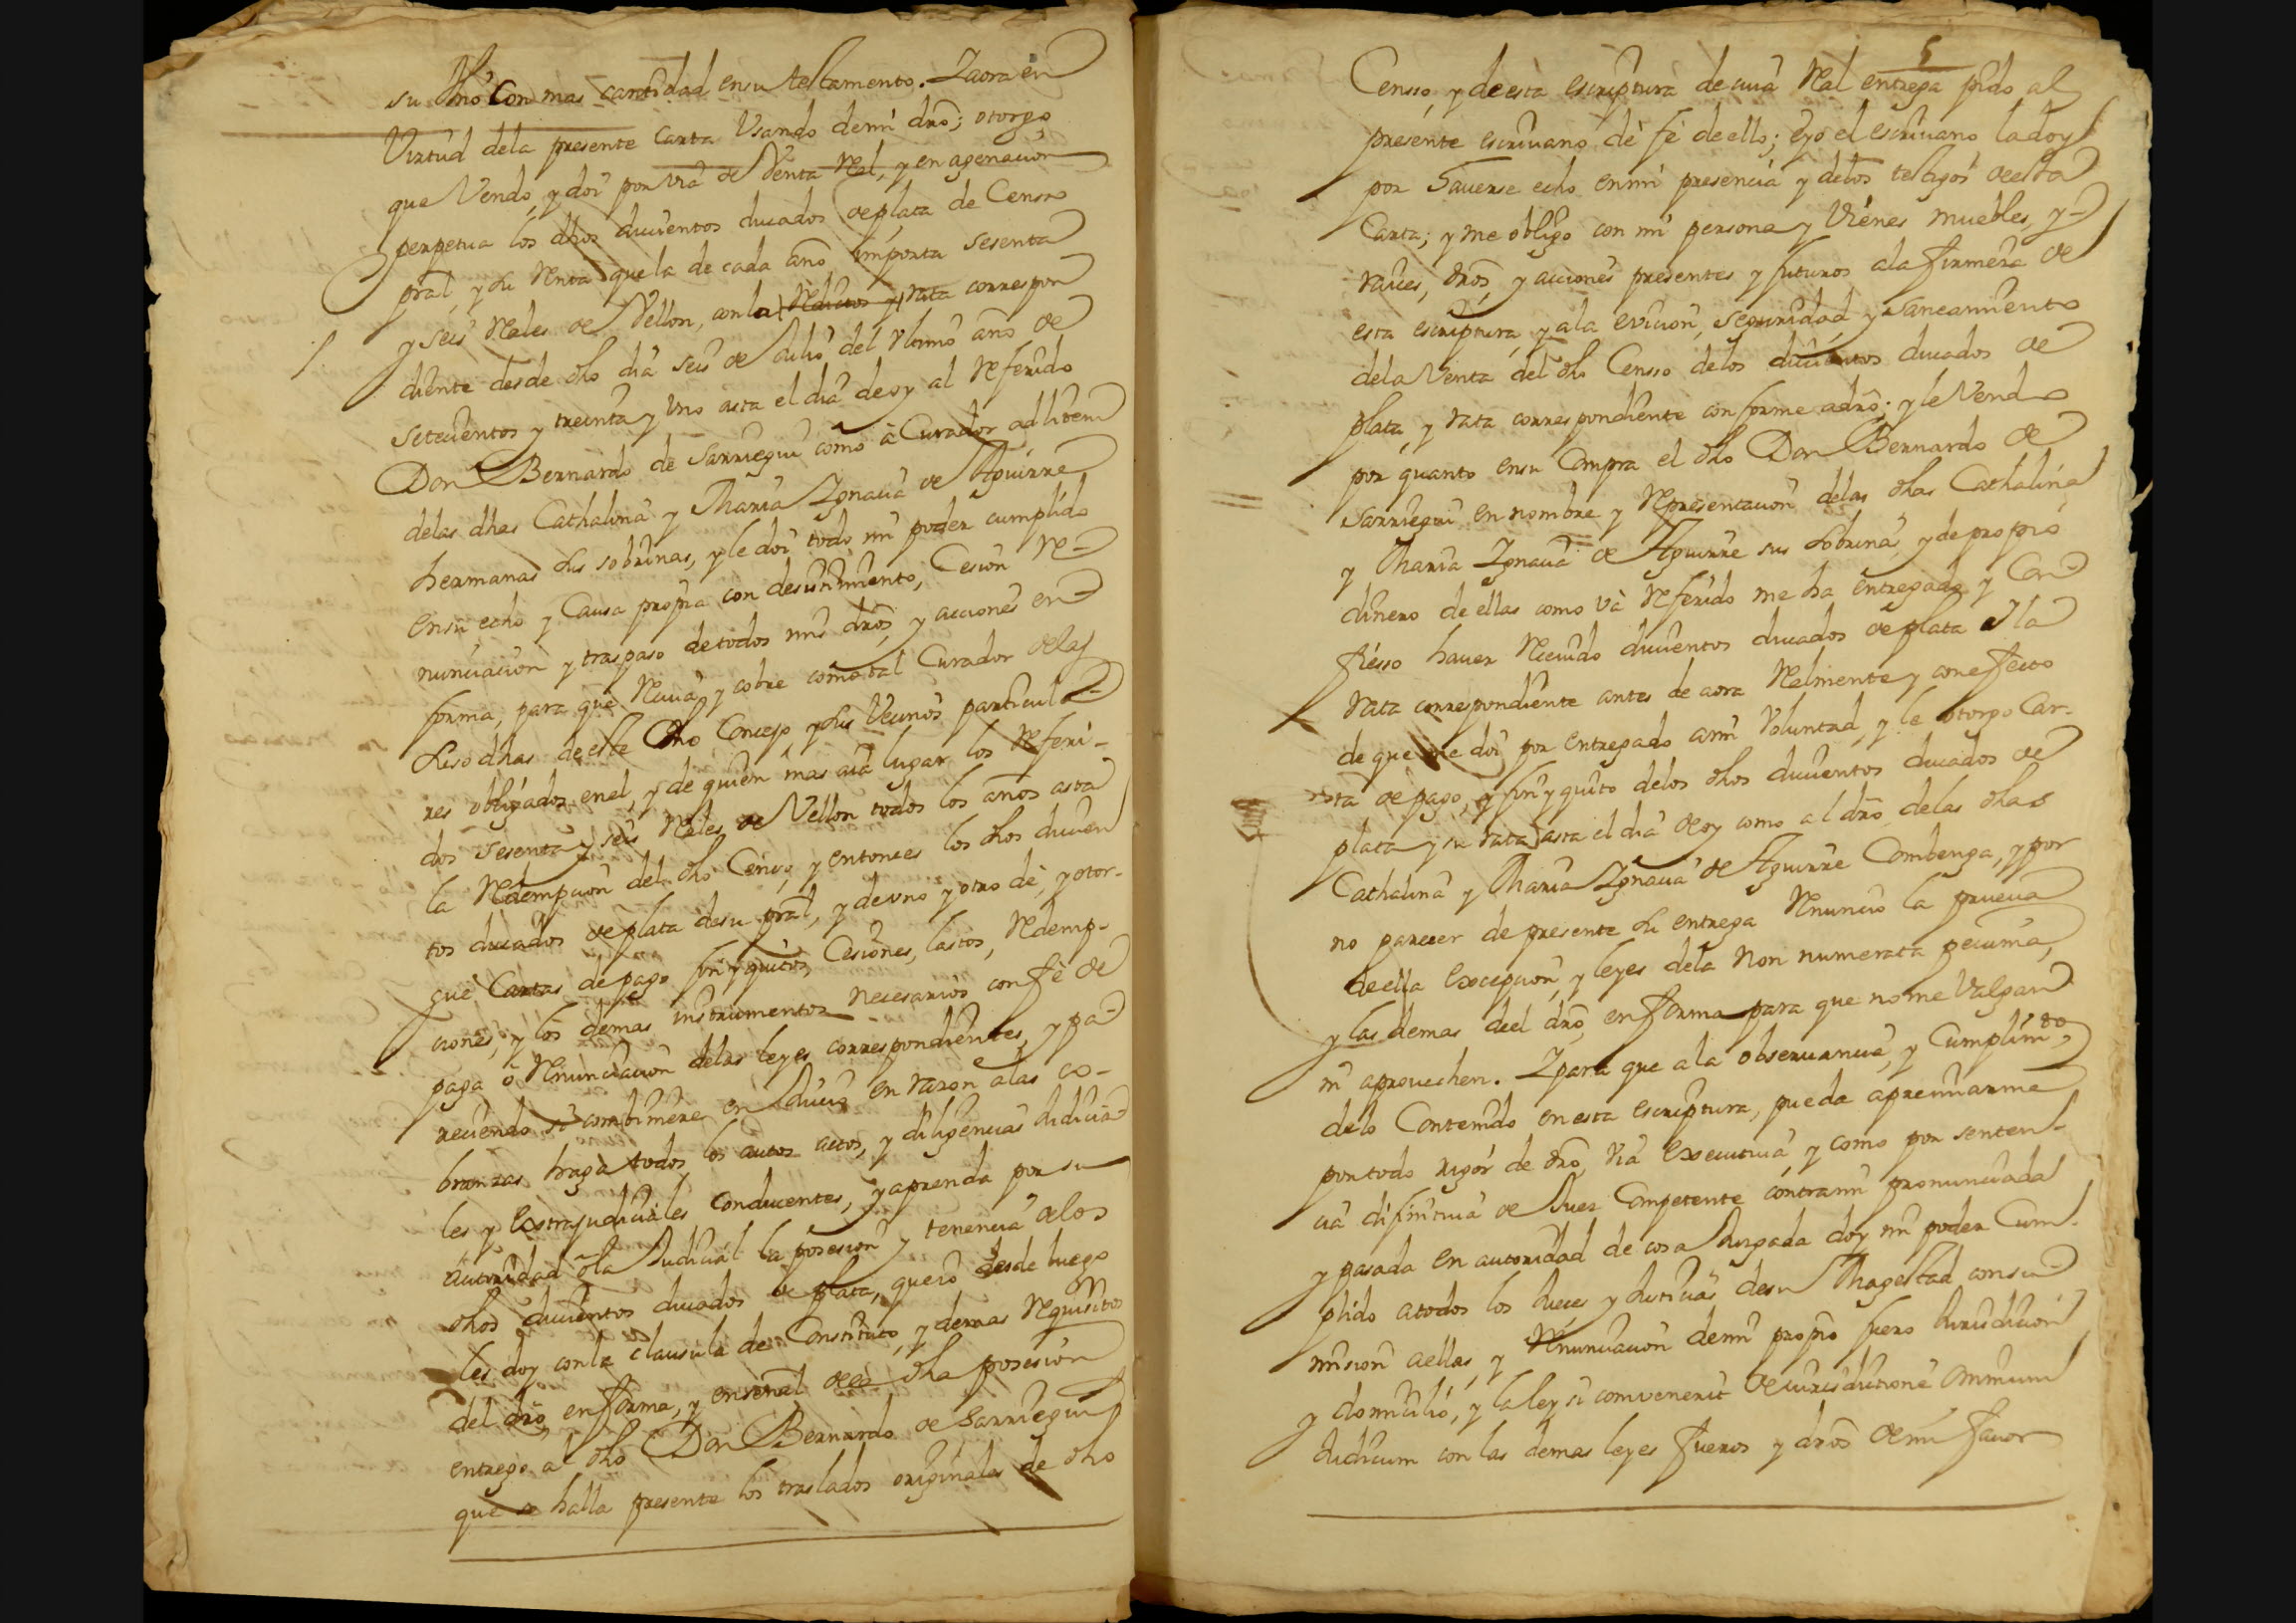 su thio con mas cantidad en su testamento. Iaora en
Virtud dela presente carta Vsando demi dro; otorgo
que Vendo, y doi por via de Venta Rl, y enagenacion
perpetua los dhos ducientos ducados de plata de Censo
pral, y su Renta que la de cada año importa sesenta
y seis Rales de Vellon, con la rata correspon
diente desde dho dia seis de Julio del Vltimo año de
setecientos y treinta y Vno asta el dia deoy al Referido
Don Bernardo de Sarriegui como à Curador adlitem
delas dhas Cathalina y Maria Ignacia de Aguirre
hermanas sus sobrinas, y le doi todo mi poder cumplido
ensu echo y Causa propia con desistimiento, Cesion Re-
nunciacion y traspaso detodos mis dros, y acciones en
forma, para que Reciva y cobre como tal Curador delas
susodhas deeste dho Concejo y sus Vecinos particula-
res obligados enel, y de quien mas aia lugar los Referi-
dos sesenta y seis Rales de Vellon todos los años asta
la Redempcion del dho Censo, y entonces los dhos ducien
tos ducados de plata desu pral, y deuno y otro dè, y otor-
gue Cartas depago finiquitos, Cesiones, lastos, Redemp-
ciones, y los demas instrumentos necesarios con fè de
paga ò Renunciacion delas leyes correspondientes, y pa-
reciendo si combiniere en Juicio en razon alas co-
branzas haga todos los autos actos, y diligencias Judicia-
les y Extrajudiciales conducentes, y aprenda por su
autoridad ò la Judicial la posesion y tenencia delos
dhos ducientos ducados de plata, que io desde luego
les doy conla clausula de Constituto, y demas Requisitos
del dro, en forma, y enseñal de dha posesion
entrego al dho Don Bernardo de Sarriegui
que se halla presente los traslados originales de dho
5
Censso, y deesta escriptura de cuia Real entrega pido al
presente escriuano dè fè deello; eyo el escriuano, la doy
por Hauerse echo enmi presencia y delos testigos deesta
Carta; y me obligo con mi persona y Vienes muebles, y-
raices, dros, y acciones presentes y futuros ala firmeza de
esta escriptura, y ala evicion, seguridad, y saneamiento
dela Venta del dho Censso delos ducientos ducados de
plata, y rata correspondiente conforme adro; y le Vendo
por quanto ensu Compra el dho Don Bernardo de
Sarriegui en nombre y Representacion delas dhas Cathalina
y Maria Ignacia de Aguirre sus sobrinas, y de propio
dinero de ellas como và Referido me ha entregado y Con
fiesso hauer Receuido ducientos ducados de plata y la
rata correspondiente antes de aora Realmente y con efecto
de que me doi por entregado ami Voluntad, y le otorgo Car-
ta de pago, y finiquito delos dhos ducientos ducados de
plata y su rata asta el dia deoy como al dro delas dhas
Cathalina y Maria Ignacia de Aguirre Combenga, y por
no parecer de presente su entrega Renuncio la prueua
deella Excepcion, y leyes dela Non numerata pecunia,
y las demas deel dro, en forma para que nome Valgan
ni aprouechen. I para que ala obseruancia, y Cumplimto,
delo Contenido en esta escriptura, pueda apremiarme
por todo rigor de dro, via Executiua, y como por senten-
cia difinitiua de Juez Competente contrami pronunciada
y pasada en autoridad de cosa Juzgada doy mi poder Cum-
plido atodos los Jueces y Justicias desu Magestad consu
mision aellas, y Renunciacion demi propio fuero Jurisdicion
y domicilio, y la ley si convenerit de iurisdictione Omnium
Judicum con las demas leyes fueros y dros de mi fauor